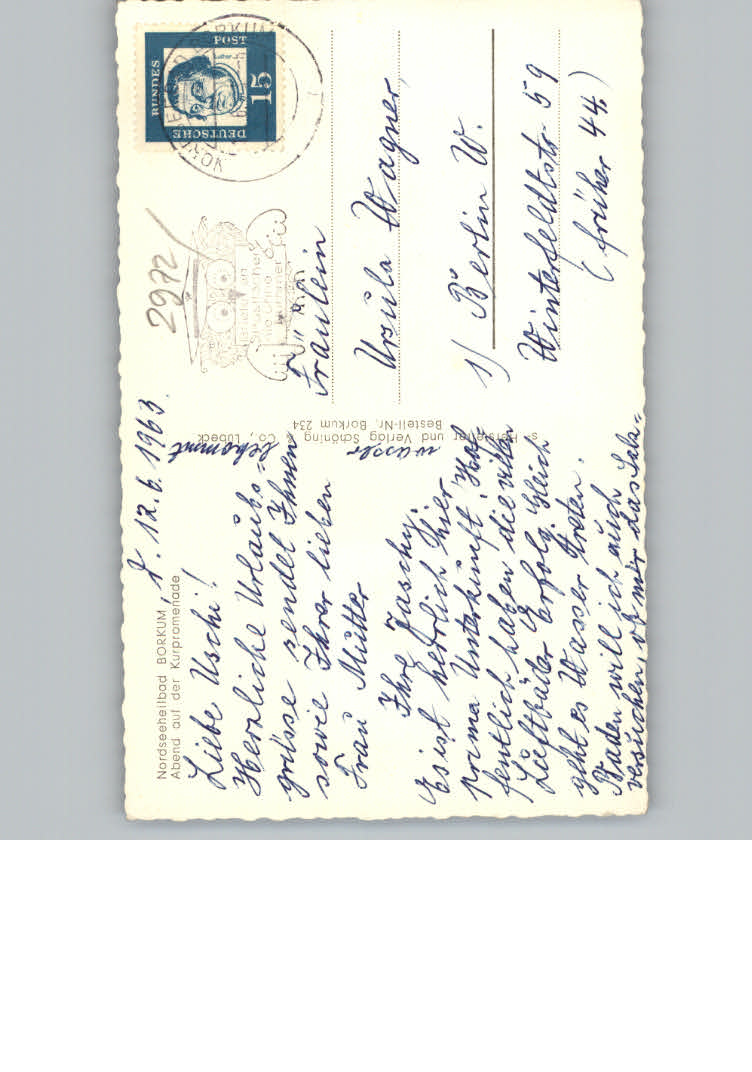 Nordseeheilbad BORKUM
Abend auf der Kurpromenade
d. 12.6.1963.
Liebe Uschi!
Herzliche Urlaubs=
grüsse sendet Ihnen
sowie Ihrer lieben
Frau Mutter
Ihre Jaschy.
Es ist herrlich hier
prima Unterkunft. Hof=
fentlich haben die vielen
Luftbäder Erfolg. Gleich
geht es Wasser treten.
Baden will ich auch
versuchen, ob mir das Salz=
wasser
bekommt
s. Hersteller und Verlag Schöning & Co., Lübeck
Bestell-Nr. Borkum 234
2972
DEUTSCHE
BUNDES
POST
15
BORKUM
Fräulein
Ursula Wagner,
1/ Berlin W.
Winterfeldtstr 59
(früher 44)